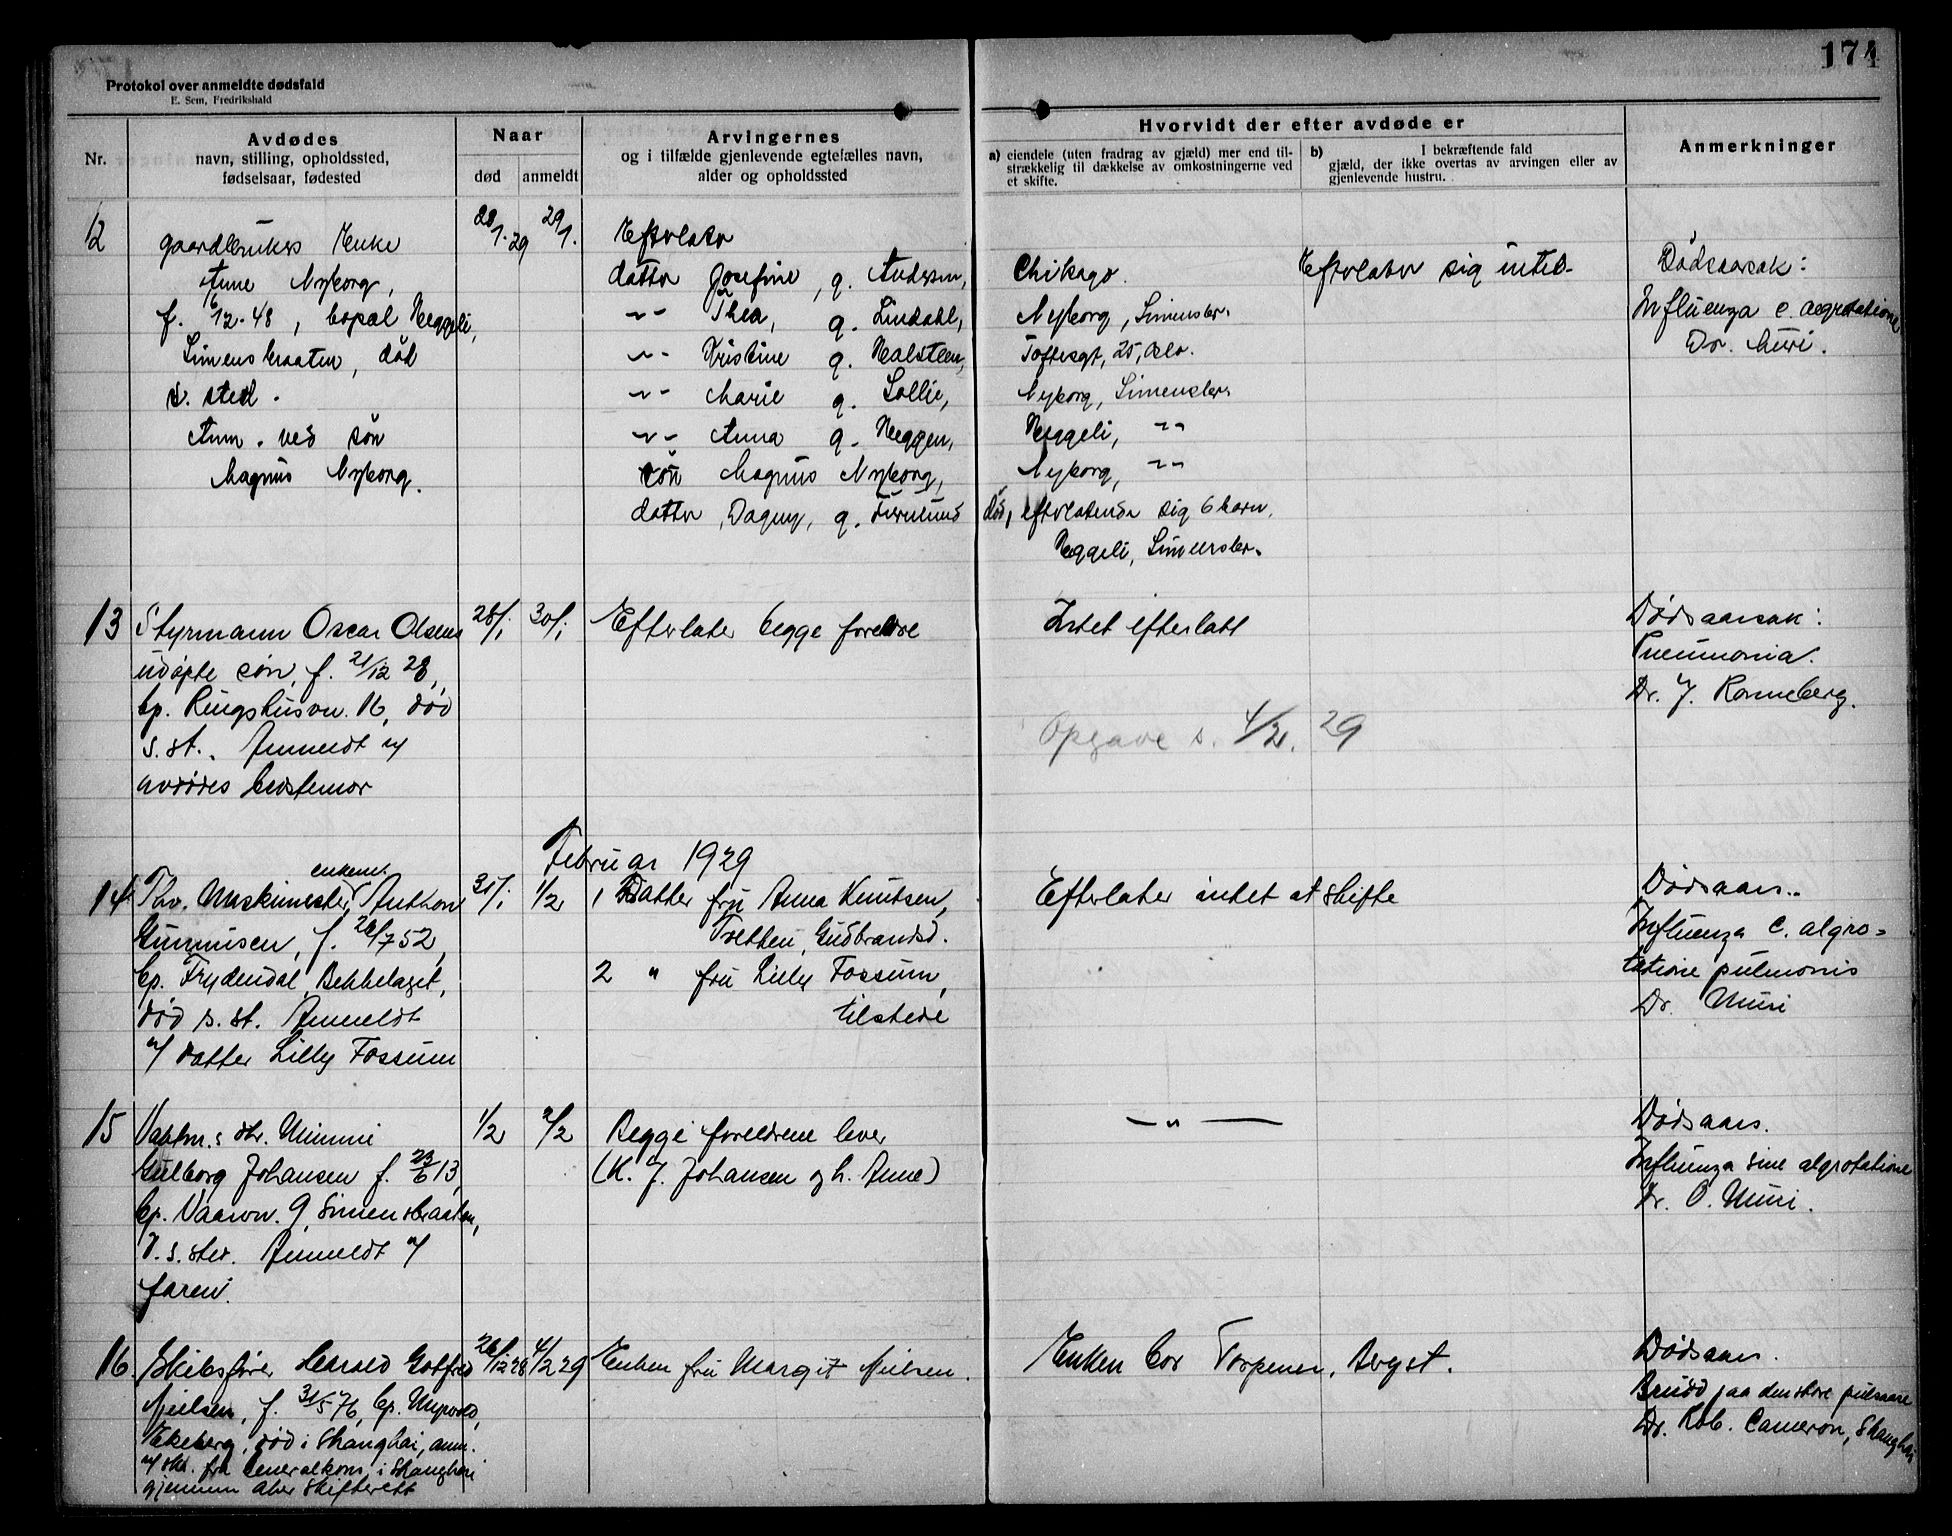 174
Protokol over anmeldte dødsfald
E. Sem, Fredrikshald
Nr.
Avdødes
navn, stilling, opholdssted,
fødselsaar, fødested
Naar
død
anmeldt
Arvingernes
og i tilfælde gjenlevende egtefælles navn,
alder og opholdssted
Hvorvidt der efter avdøde er
a) eiendele (uten fradrag av gjæld) mer end til-
strækkelig til dækkelse av omkostningerne ved
et skifte.
b) I bekræftende fald
gjæld, der ikke overtas av arvingen eller av
gjenlevende hustru.
Anmerkninger
12
gaardbrukers Enke
Anne Nyborg,
f. 6/12-48, bopæl Heggeli,
Simensbraaten, død
s. sted.
Anm. ved søn
Magnus Nyborg.
28/1.29
29/1.
Efterlater
datter Josefine, g. Andersen,
-"- Thea, g. Lindahl,
-"- Kristine g. Halsteen,
-"- Marie g. Lollie,
-"- Anna g. Heggen,
søn Magnus Nyborg,
datter, Dagny, g.
Chikago.
Nyborg, Simensbr.
Toftesgt, 25, Oslo.
Nyborg, Simensbr.
Heggeli, -"-
Nyborg, -"-
død, efterlatende sig 6 barn,
Heggeli, Simensbr.
Efterlater sig intet.
Dødsaarsak:
Influenza c. aegrotatione
Dr. Muri.
13
Styrmann Oscar Olsens
udøpte søn, f. 21/12 28,
bp. Ringshusvn. 16, død
s. st. Anmeldt v/
avdødes bestemor
28/1
30/1
Efterlater begge foreldre
Intet efterlatt
Opgave s. 4/2. 29
Dødsaarsak:
Pneumonia.
Dr. J. Ronneberg.
Februar 1929
14
Fhv. Maskinmester, enkem. Anthon
Gunnusen, f. 28/7 52,
bp. Frydendal, Bekkelaget,
død s. st. Anmeldt
v/ datter Lilly Fossum
31/1
1/2
1 Datter fru Anna Knutsen,
Tretten, Gudbrandsd.
2 " fru Lilly Fossum,
tilstede
Efterlater intet at skifte
Dødsaars.
Influenza c. algro=
tatione pulmonis
Dr. Muri
15
Vaktm.s dtr. Mimmi
Gulborg Johansen f. 23/6 13,
bp. Vaarvn. 9, Simensbraaten,
d. s. sted. Anmeldt v/
faren.
1/2
2/2
Begge foreldrene lever
(K. J. Johansen og h. Anne)
— " —
Dødsaars.
Influenza sine algrotatione
Dr. O. Muri.
16.
Skibsfører Harald Gotfred
Nielsen, f. 31/5 76, bp.
Ekeberg, død i Shanghai, anm.
v/ skr. fra Generalkons. i Shanghai
gjennem Aker Skifterett
26/12 28
4/2 29
Enken fru Margit Nielsen.
Enken bor Torpenes, Avgst.
Dødsaars.
Brudd paa den store pulsaare
Dr. Rob. Cameron, Shanghai